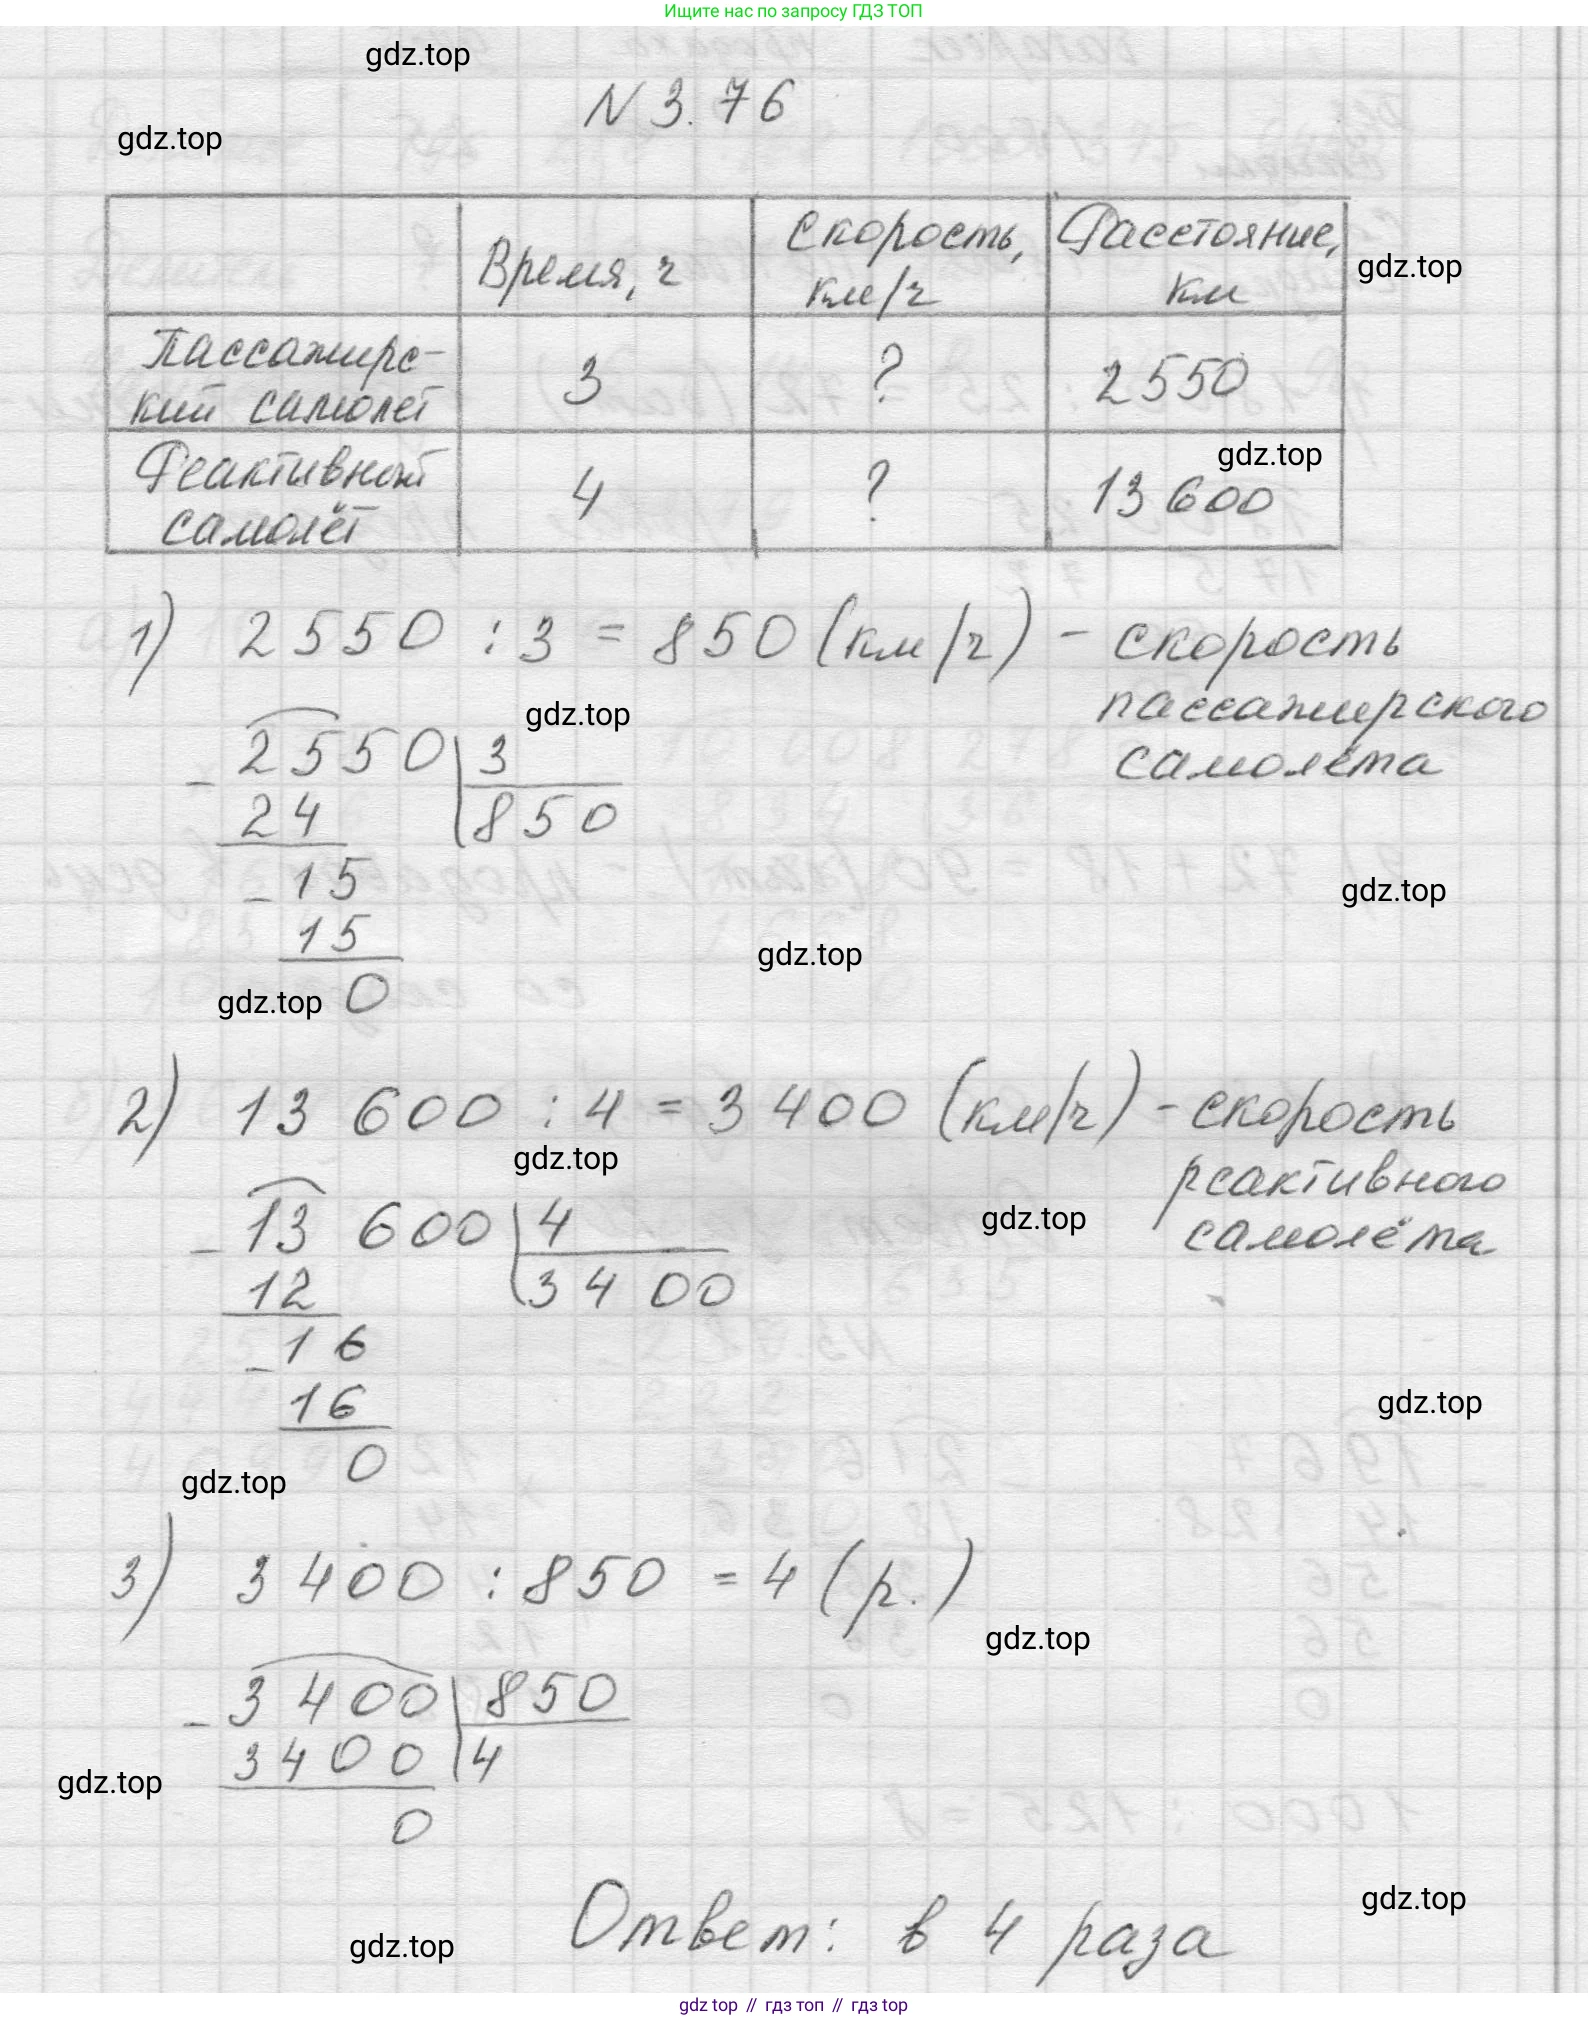 Ищите нас по запросу ГДЗ ТОП
gdz.top
N 3.76
gdz.top
Время, ч
Скорость, км/ч
Расстояние, км
gdz.top
Пассажирс-
кий самолёт
3
?
2550
gdz.top
Реактивный
самолёт
4
?
13 600
1) 2550 : 3 = 850 (км/ч) - скорость
пассажирского
самолёта
gdz.top
- 2550 | 3
24 850
- 15
15
0
gdz.top
gdz.top
gdz.top
2) 13 600 : 4 = 3 400 (км/ч) - скорость
реактивного
самолёта
gdz.top
gdz.top
- 13 600 | 4
12 3 4 00
- 16
16
0
gdz.top
gdz.top
3) 3 400 : 850 = 4 (р.)
gdz.top
- 3 400 | 850
3400 4
0
gdz.top
gdz.top
Ответ: в 4 раза
gdz.top
gdz top // гдз топ // gdz top